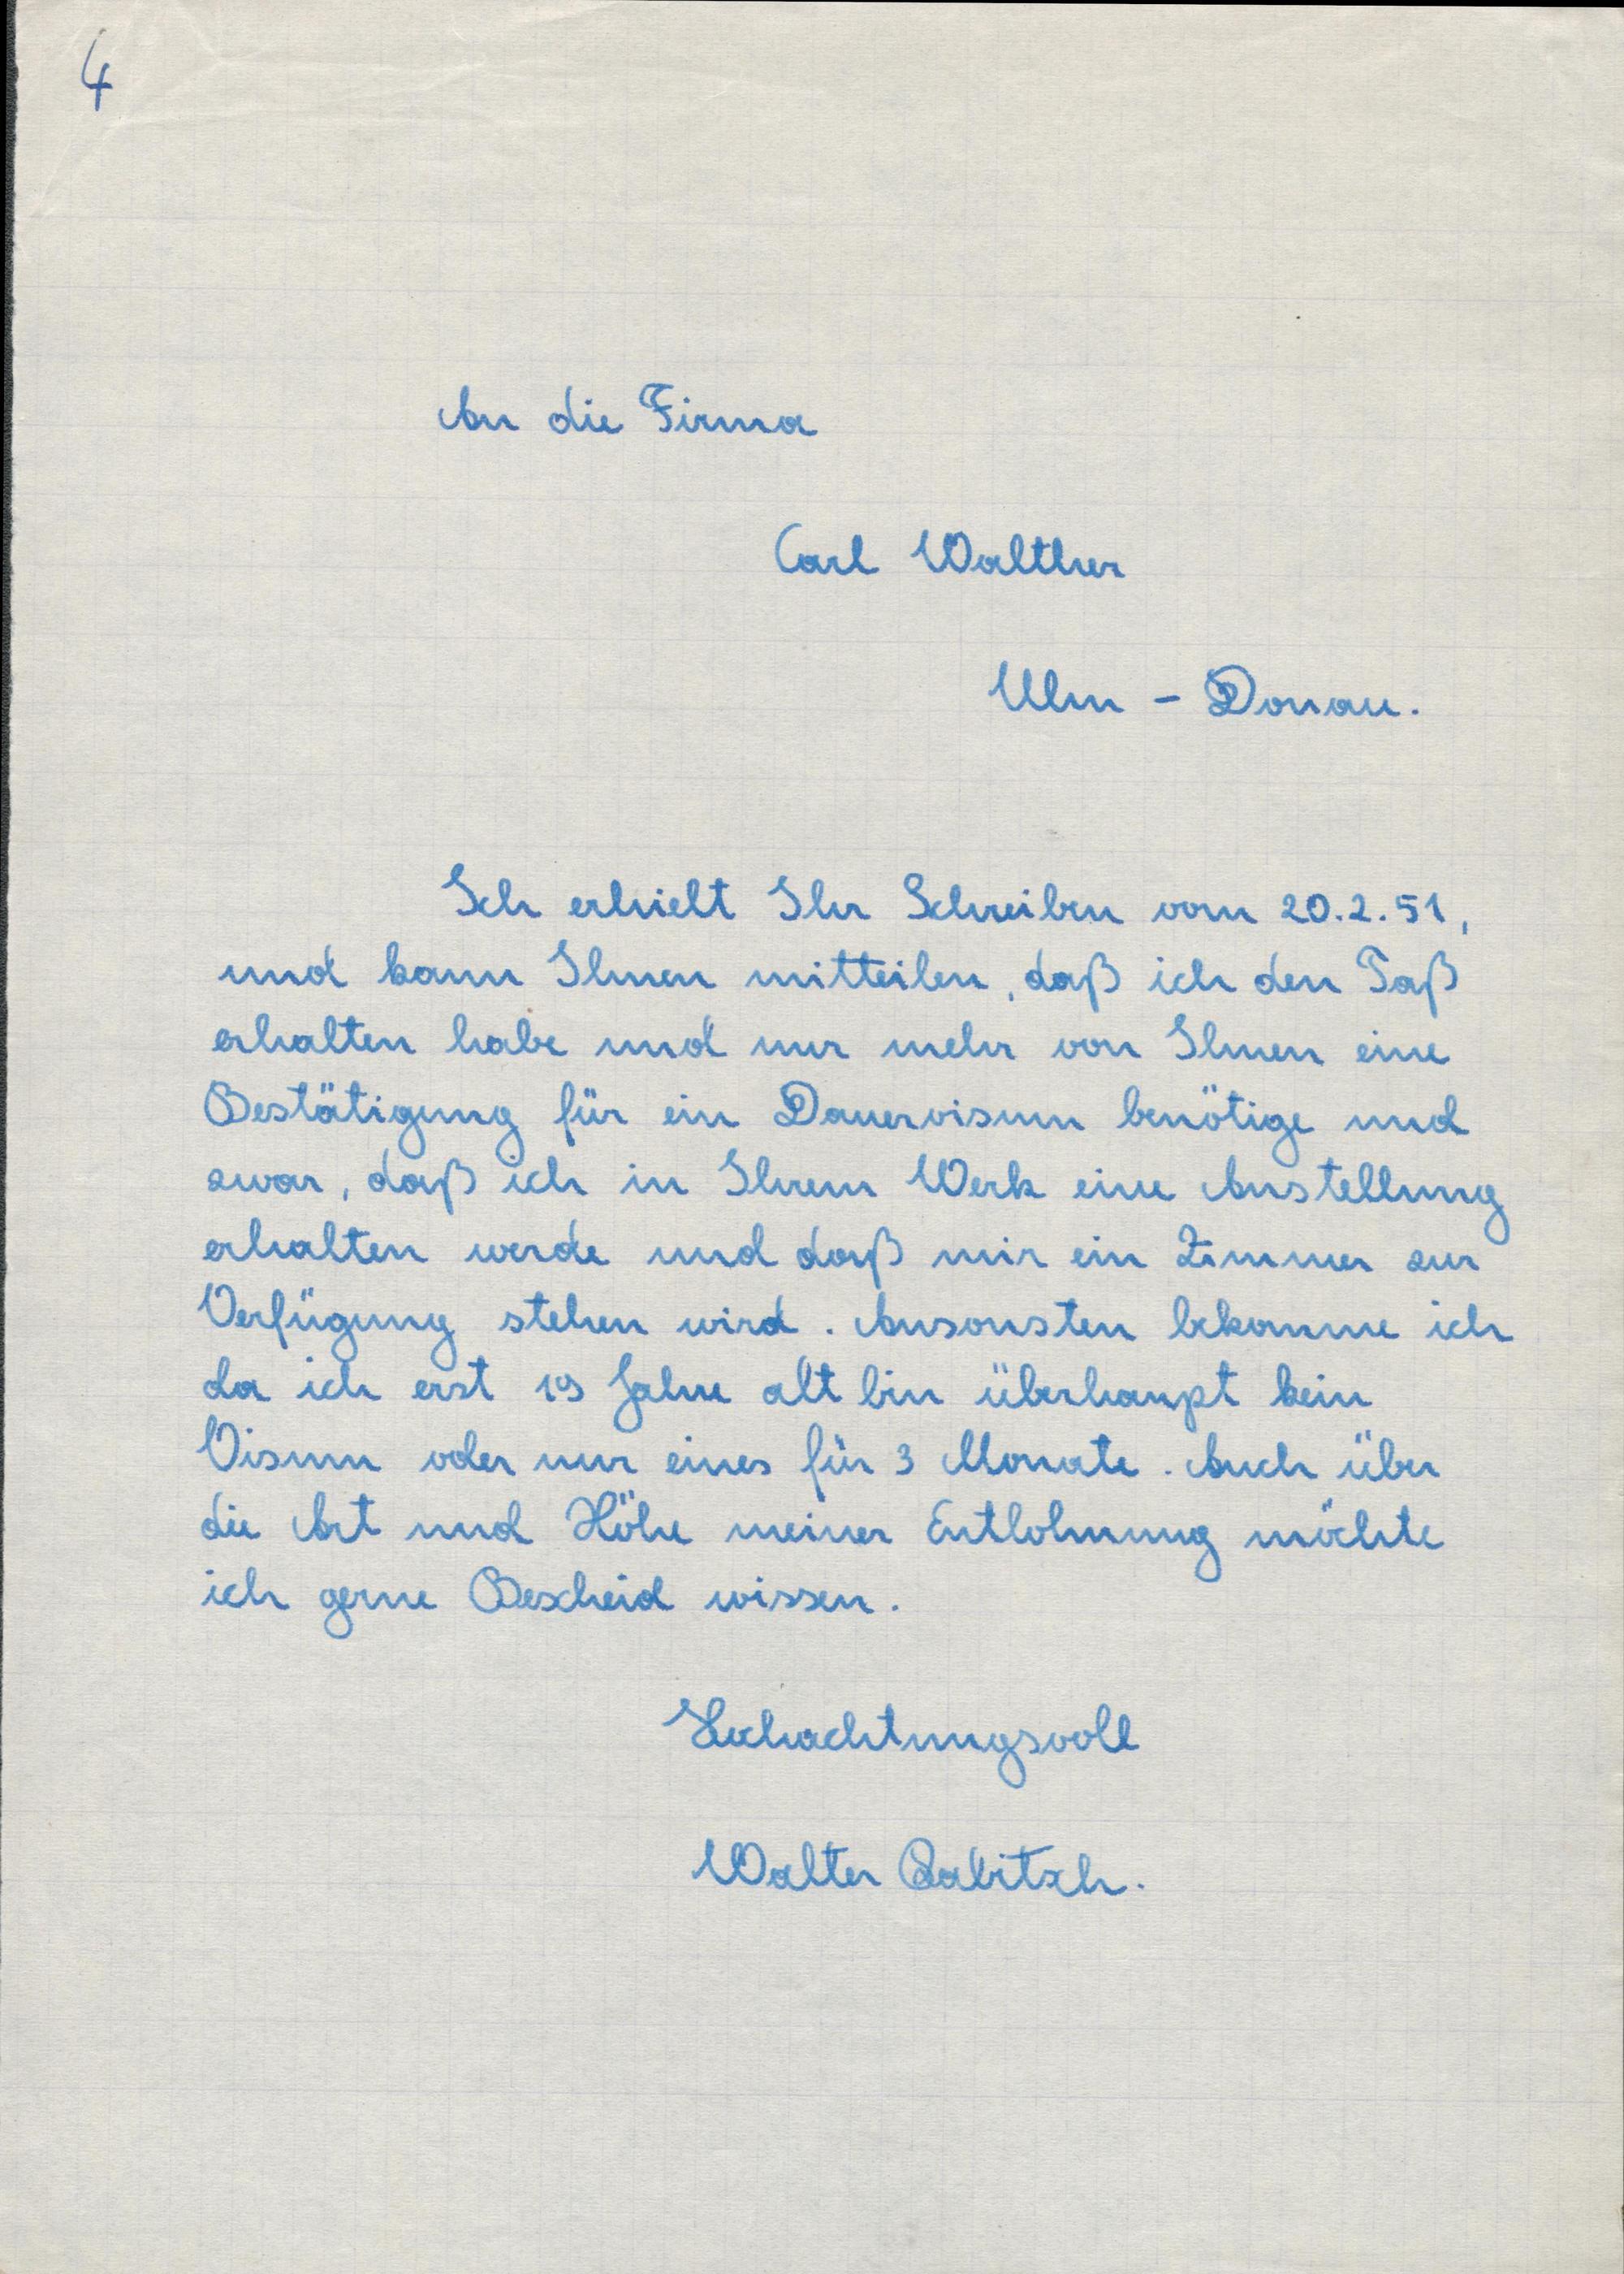 4
An die Firma
Carl Walther
Ulm - Donau.
Ich erhielt Ihr Schreiben vom 20.2.51,
und kann Ihnen mitteilen, daß ich den Paß
erhalten habe und nur mehr von Ihnen eine
Bestätigung für ein Dauervisum benötige und
zwar, daß ich in Ihrem Werk eine Anstellung
erhalten werde und daß mir ein Zimmer zur
Verfügung stehen wird. Ansonsten bekomme ich
da ich erst 19 Jahre alt bin überhaupt kein
Visum oder nur eines für 3 Monate. Auch über
die Art und Höhe meiner Entlohnung möchte
ich gerne Bescheid wissen.
Hochachtungsvoll
Walter